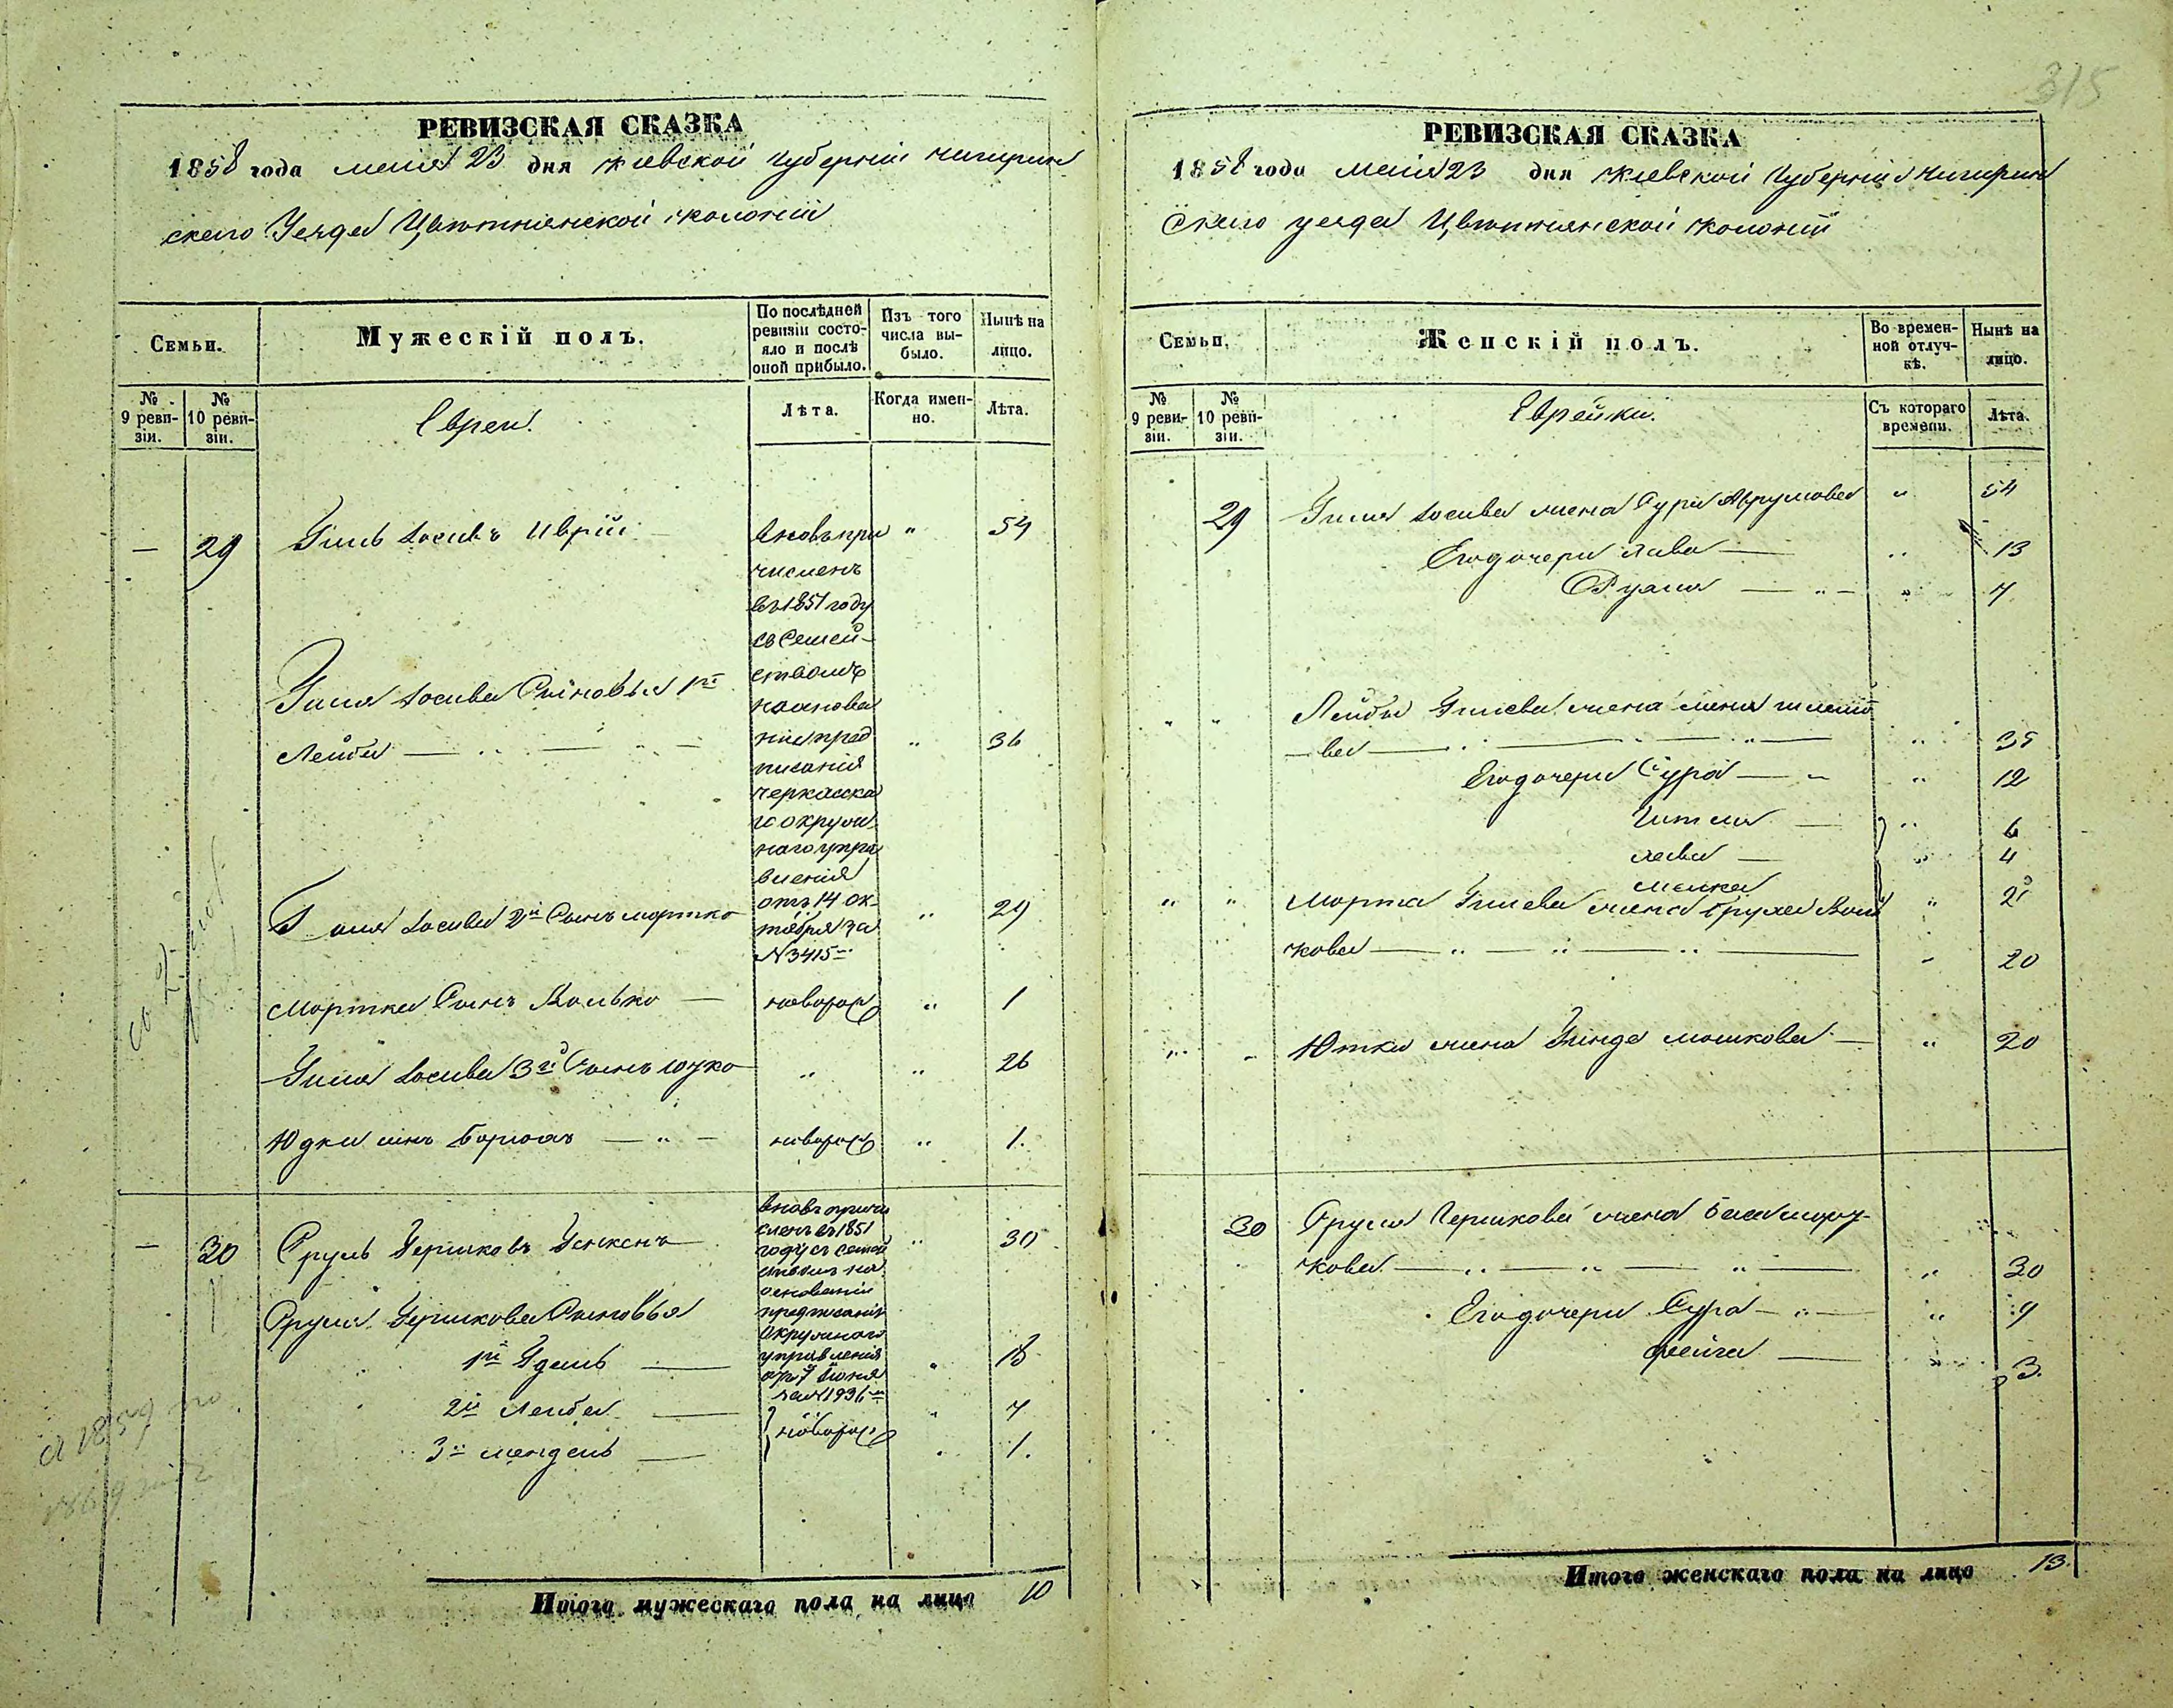 315
РЕВИЗСКАЯ СКАЗКА
1858 года маия 23 дня Киевской Губерніи Чигирин
скаго Уезда Цвѣтнянской колоніи
Семьи.
Мужескій полъ.
По послѣдней ревизіи состояло и послѣ оной прибыло.
Изъ того числа выбыло.
Нынѣ на лицо.
№ 9 ревизіи.
№ 10 ревизіи.
Евреи.
Лѣта.
Когда именно.
Лѣта.
— 29 Гиль Іосивъ „ 54
Вновь при
численъ
въ 1851 году
со Семей-
ствомъ
на основа
ніи пред
писания
Черкаска
го окруж
наго упра
вления
отъ 14 ок-
тября за
№ 3415
Гиля Іосива Сыновья 1й
Лейба — „ — „ — „ 36
Гиля Іосива 2й Сынъ Мортко „ 29
Мортка Сынъ Волько — новорож „ 1
Гиля Іосива 3й Сынъ Юдко „ „ 26
Юдки сынъ Борохъ — „ — новорож „ 1.
— 30 Сруль Гершковъ „ 30
вновь причи
сленъ въ 1851
году съ семей
ствомъ на
основаніи
предписанія
Окружнаго
управления
отъ 7 Іюня
за № 1936
Сруля Гершкова Сыновья
1й — „
2й Лейба — „ 7
3й Мендель — „ 1.
новорож
Итого мужескаго пола на лицо 10
РЕВИЗСКАЯ СКАЗКА
1858 года Маия 23 дня Киевской Губерніи Чигирин
скаго уезда Цвѣтнянской колоніи
Семьи.
Женскій полъ.
Во временной отлучкѣ.
Нынѣ на лицо.
№ 9 ревизіи.
№ 10 ревизіи.
Еврейки.
Съ котораго времени.
Лѣта.
29 Гиля Іосива жена Сура Аврумова „ 54
Его дочери Хава — „ 13
Рухля — „ — „ 7
„ „ Лейбы Гилева жена
— ва — „ — „ — „ 35
Его дочери Сура — „ „ 12
Гитля — „ 6
Хава — „ 4
Малка „ 2
„ „ Мортка Гилева жена Бруха Воль
кова — „ — „ — „ — „ 20
„ „ Ютки жена Гинда Мошкова — „ 20
30 Сруля Гершкова жена Бася
кова — „ — „ — „ — „ 30
Его дочери Сура — „ — „ 9
Фейга — „ 3.
Итого женскаго пола на лицо 13.